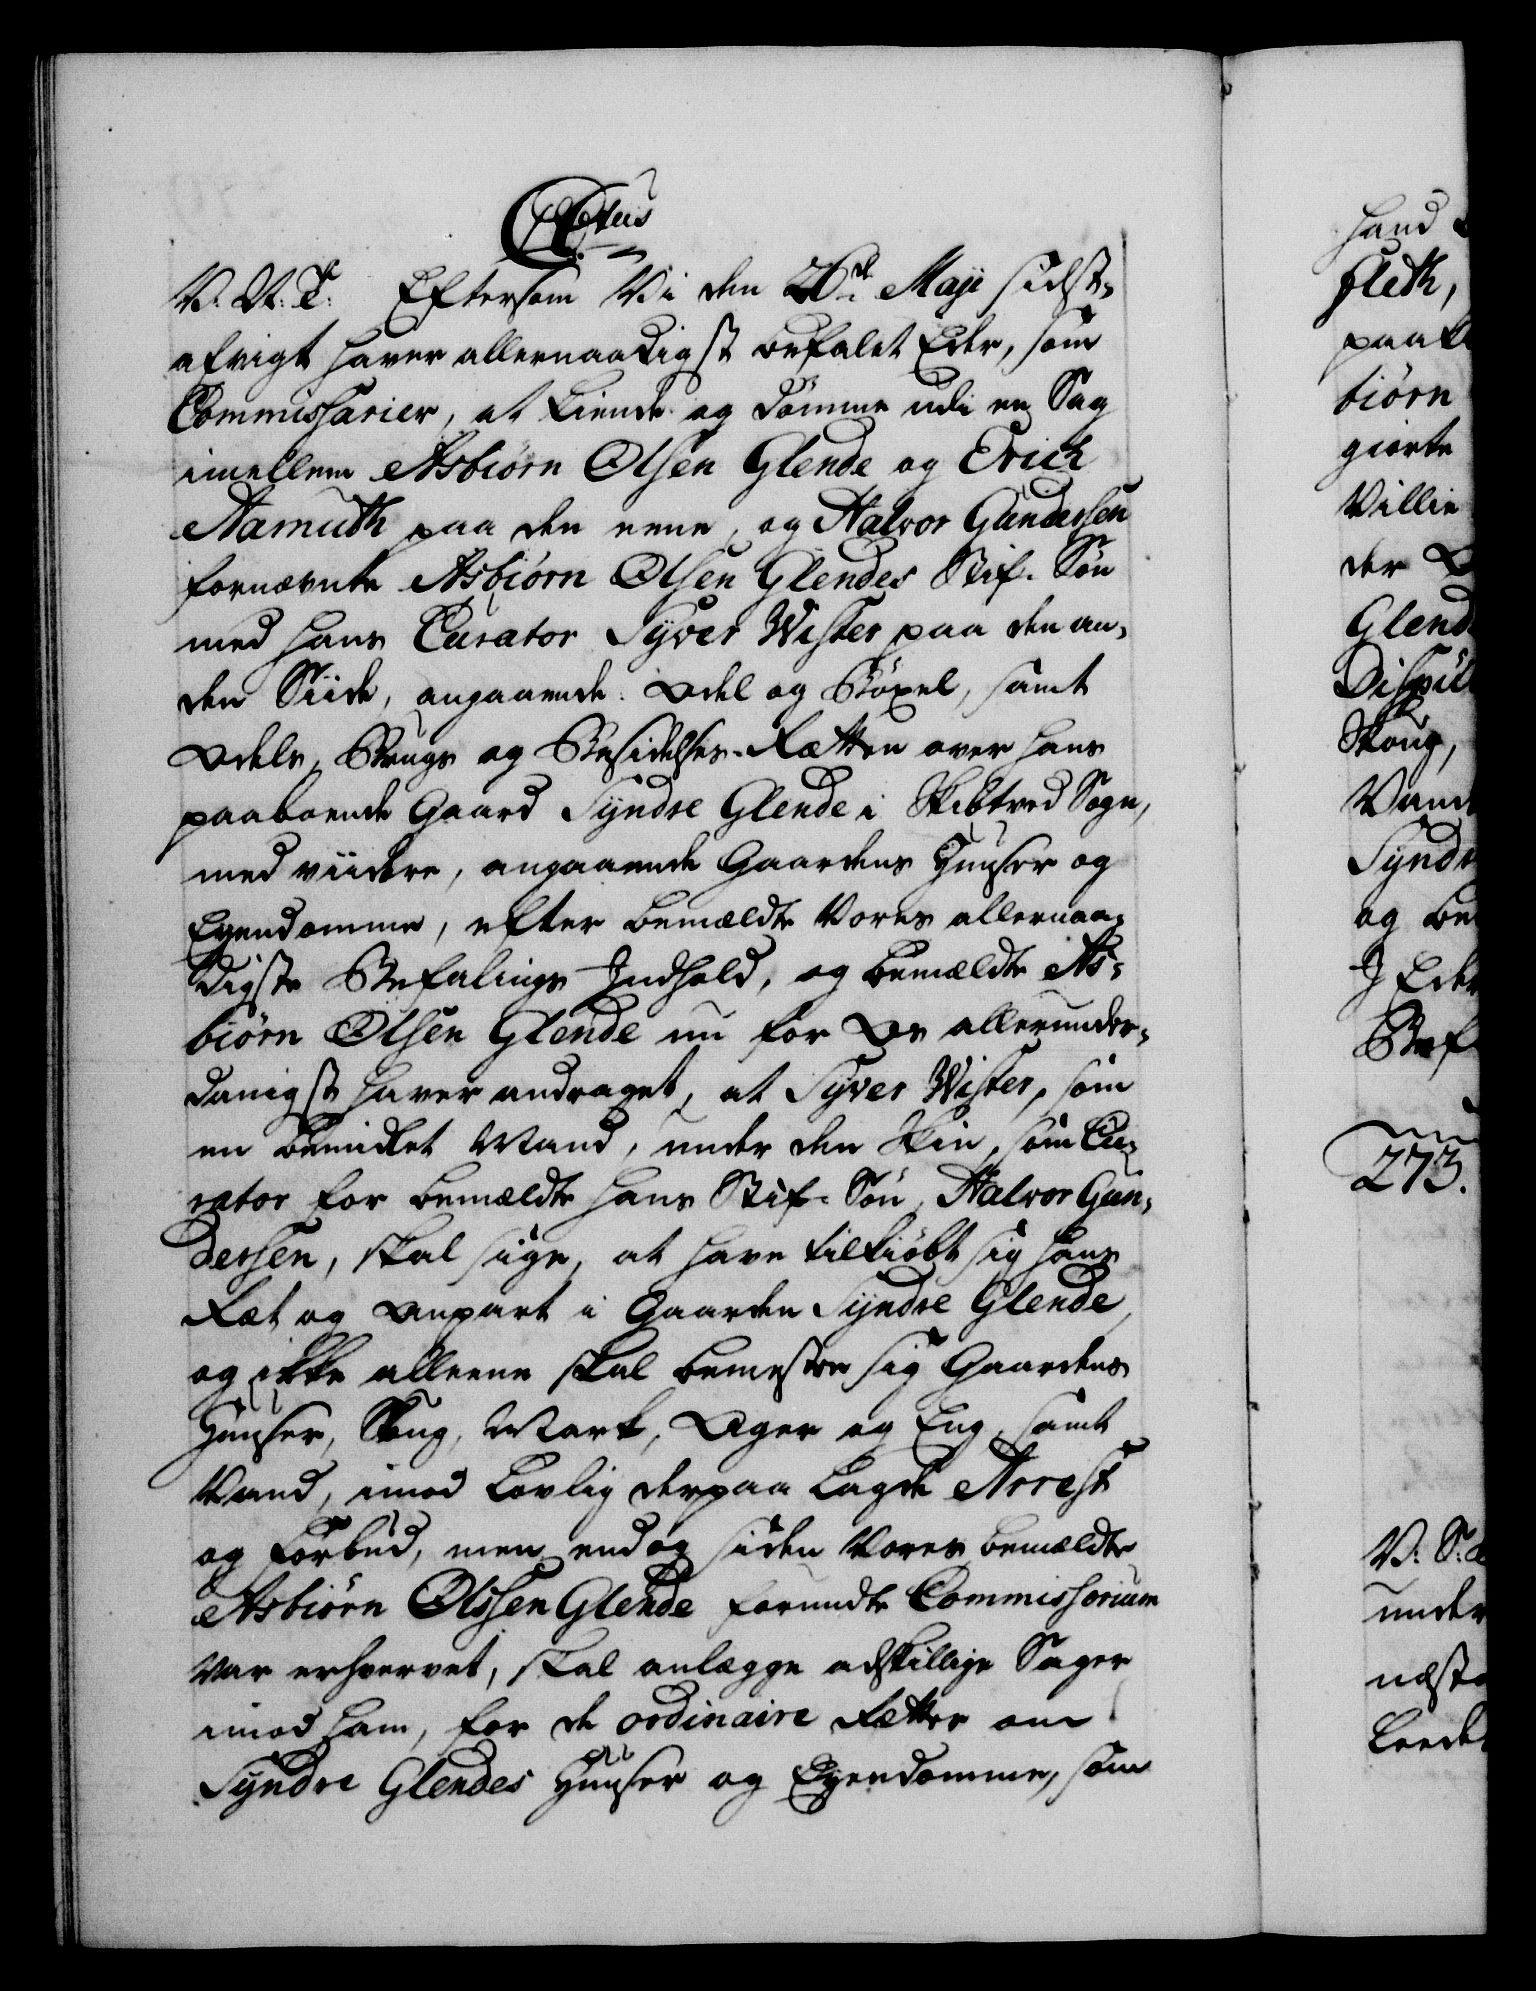 C6tus
V. A. T. Eftersom Vi den 26de Maji sidst-
afvigt haver allernaadigst befalet Eder, som
Commissarier, at kiende og dømme udi en Sag
imellem Asbiørn Olsen Glende og Erich
Aamuth paa den eene, og Halvor Gundersen
fornævnte Asbiørn Olsen Glendes Stif-Søn
med hans Curator Syver Wister paa den an-
den Siide, angaaende Odel og Skøxel, samt
Odels, Brugs og Besidelses-Retten over hans
paaboende Gaard Syndre Glende i Skibtved Sogn,
med viidere, angaaende Gaardens Huuser og
Eyendomme, efter bemældte Vores allernaa-
digste Befalings Indhold, og bemældte As-
biørn Olsen Glende nu for Os allerunder-
danigst haver andraget, at Syver Wister, som
en bemidlet Mand, under den Skin, som Cu-
rator for bemældte hans Stif-Søn, Halvor Gun-
dersen, skal siige, at have tilkiøbt sig hans
Ræt og Anpart i Gaarden Syndre Glende,
og ikke alleene skal bemestre sig Gaardens
Huuser, Skoug, Mark, Ager og Eng, samt
Vand, imod lovlig derpaa lagde Arrest
og Forbud, men endog siden Vores bemældte
Asbiørn Olssen Glende forundte Commissorium
var erhvervet, skal anlægge adskillige Sager
imod ham, for de ordinaire Retter om
Syndre Glendes Huuser og Eyendomme, som
hand
Fleth,
paak
biørn
giorte
Villie
der
Glend
Disput
Skoug,
Vand
Synd
og be
I Eder
Bef
273.
V. S.
under
næst
leedet